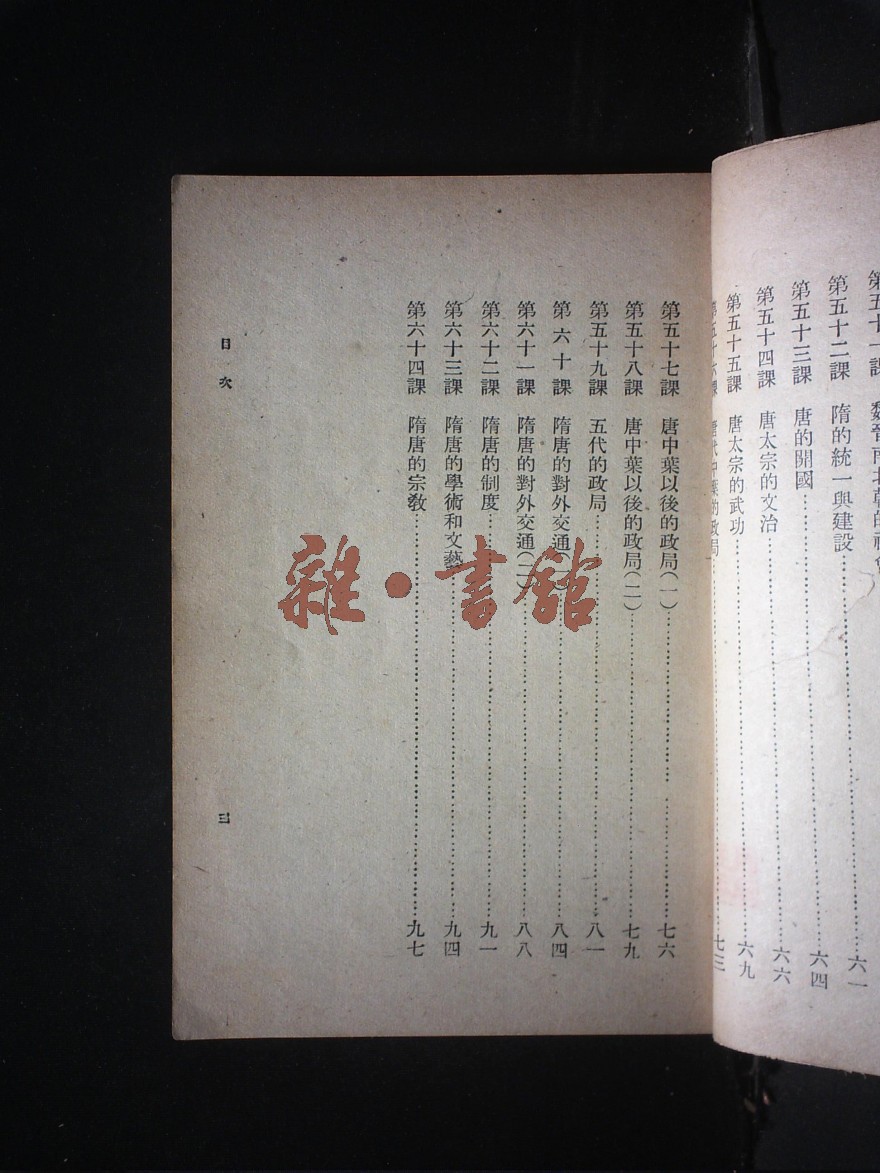 第五十一課 魏晉南北朝的社會
第五十二課 隋的統一與建設……六一
第五十三課 唐的開國……六四
第五十四課 唐太宗的文治……六六
第五十五課 唐太宗的武功……六九
第五十六課 唐代中葉的政局……七三
第五十七課 唐中葉以後的政局(一)……七六
第五十八課 唐中葉以後的政局(二)……七九
第五十九課 五代的政局……八一
第六十課 隋唐的對外交通(一)……八四
第六十一課 隋唐的對外交通(二)……八八
第六十二課 隋唐的制度……九一
第六十三課 隋唐的學術和文藝……九四
第六十四課 隋唐的宗教……九七
目次
三
雜·書館